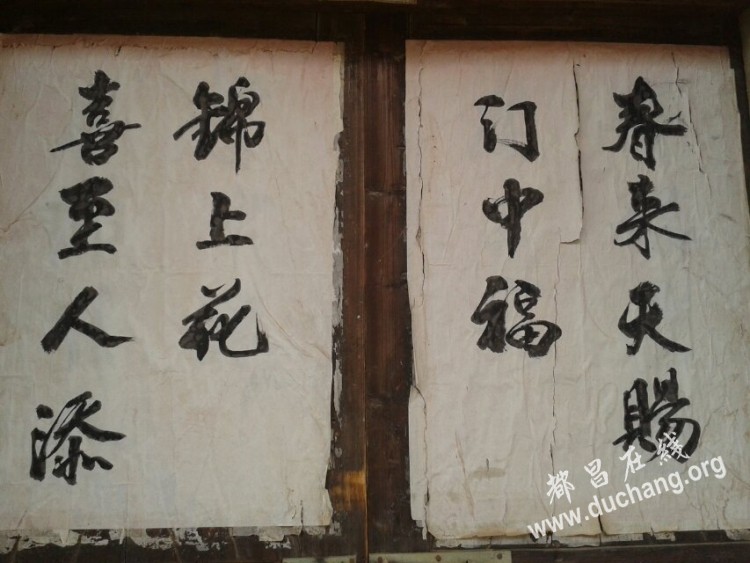 春来天賜
门中福
喜至人添
锦上花
都昌在线
www.duchang.org